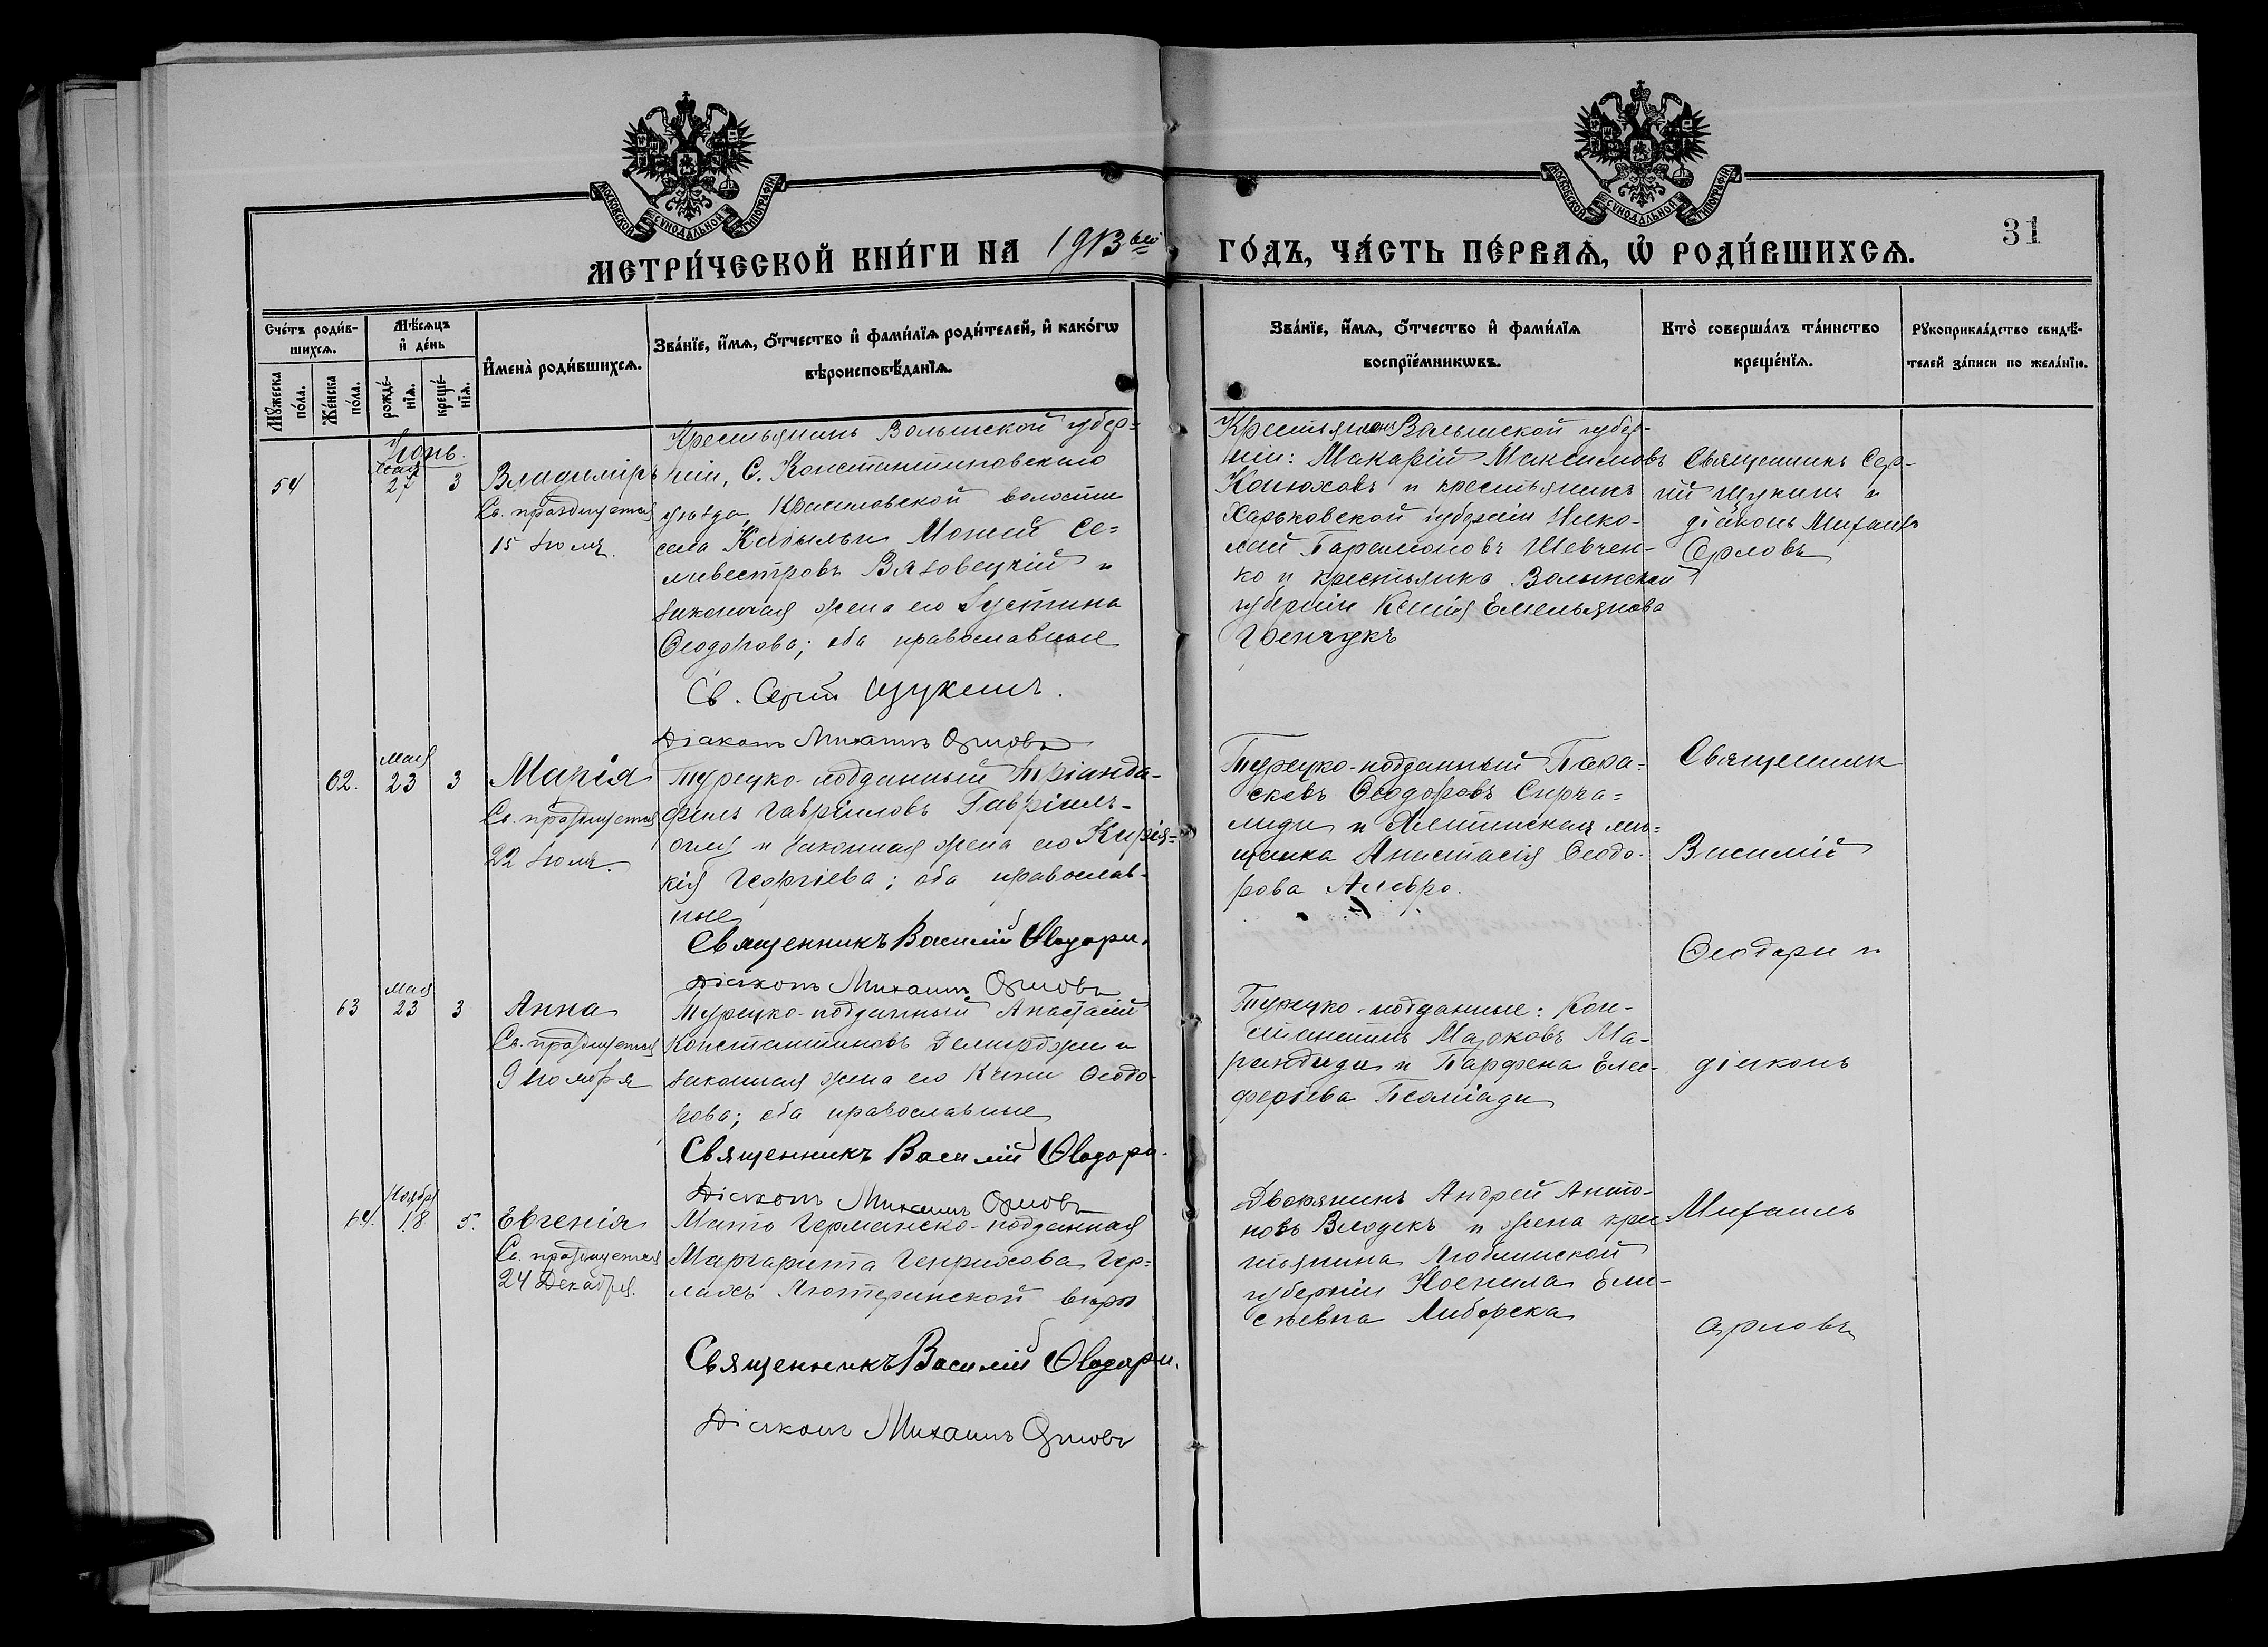 МОСКОВСКОЙ СѴНОДАЛЬНОЙ ТИПОГРАФІИ
МОСКОВСКОЙ СѴНОДАЛЬНОЙ ТИПОГРАФІИ
31
МЕТРИ́ЧЕСКОЙ КНИ́ГИ НА 1913 ГО́ДЪ, ЧА́СТЬ ПЕ́РВАѦ, Ѡ҆ РОДИ́ВШИХСѦ.
Сче́тъ роди́в-
шихсѧ.
Мꙋ́жеска
по́ла.
Же́нска
по́ла.
Мѣ́сѧцъ
и҆ де́нь
рожде́-
нїѧ.
креще́-
нїѧ.
И҆мена̀ роди́вшихсѧ.
Зва́нїе, и҆́мѧ, ѻ҆́тчество и҆ фами́лїѧ роди́телей, и҆ како́гѡ
вѣроисповѣ́данїѧ.
Зва́нїе, и҆́мѧ, ѻ҆́тчество и҆ фами́лїѧ
воспрїе́мникѡвъ.
Кто̀ соверша́лъ та́инство
креще́нїѧ.
Рꙋкоприкла́дство свидѣ́-
телей за́писи по жела́нїю.
Іюнь.
54
Мая
27
3
Владиміръ
Св. празднуется
15 Іюля.
Крестьянинъ Волынской губер-
ніи, С. Константиновскаго
уѣзда, Красиловской волости
села Кобыльи Моисей Се-
ливестровъ Вязовецкій и
законная жена его Іустина
Ѳеодорова; оба православные
Св. Сергій Щукинъ.
Діаконъ Михаилъ Орловъ
Крестьянинъ Волынской губер-
ніи: Макарій Максимовъ
Конюховъ и крестьянинъ
Харьковской губерніи Нико-
лай Парамоновъ Шевчен-
ко и крестьянка Волынской
губерніи Ксенія Емельянова
Гренчукъ
Священникъ Сер-
гій Щукинъ и
діаконъ Михаилъ
Орловъ
62.
Мая
23
3
Марія
Св. празднуется
22 Іюля.
Турецко-подданный Тріанда-
филъ Гавріиловъ Гавріилъ-
оглу и законная жена его Кирія-
кія Георгіева; оба православ-
ные
Священникъ Василій Ѳеодори.
Діаконъ Михаилъ Орловъ
Турецко-подданный Пара-
скевъ Ѳеодоровъ Сирча-
лиди и Ялтинская мѣ-
щанка Анастасія Ѳеодо-
рова Алебро.
Священник
Василій
Ѳеодори и
діаконъ
Михаилъ
Орловъ
63
Мая
23
3
Анна
Св. празднуется
9 Ноября
Турецко-подданный Анастасій
Константиновъ Демирджи и
законная жена его Кчени Ѳеодо-
рова; оба православные
Священникъ Василій Ѳеодори.
Діаконъ Михаилъ Орловъ
Турецко-подданные: Кон-
стантинъ Марковъ Ма-
рандиди и Парфена Елев-
феріева Псоміади
64.
Ноября
18
5.
Евгенія
Св. празднуется
24 Декабря.
Мать Германско-подданная
Маргарита Генрихова Гер-
лахъ Лютеранской вѣры
Священникъ Василій Ѳеодори.
Діаконъ Михаилъ Орловъ
Дворянинъ Андрей Анто-
новъ Влодекъ и жена кре-
стьянина Люблинской
губерніи Неонила Ели-
сѣевна Либерска